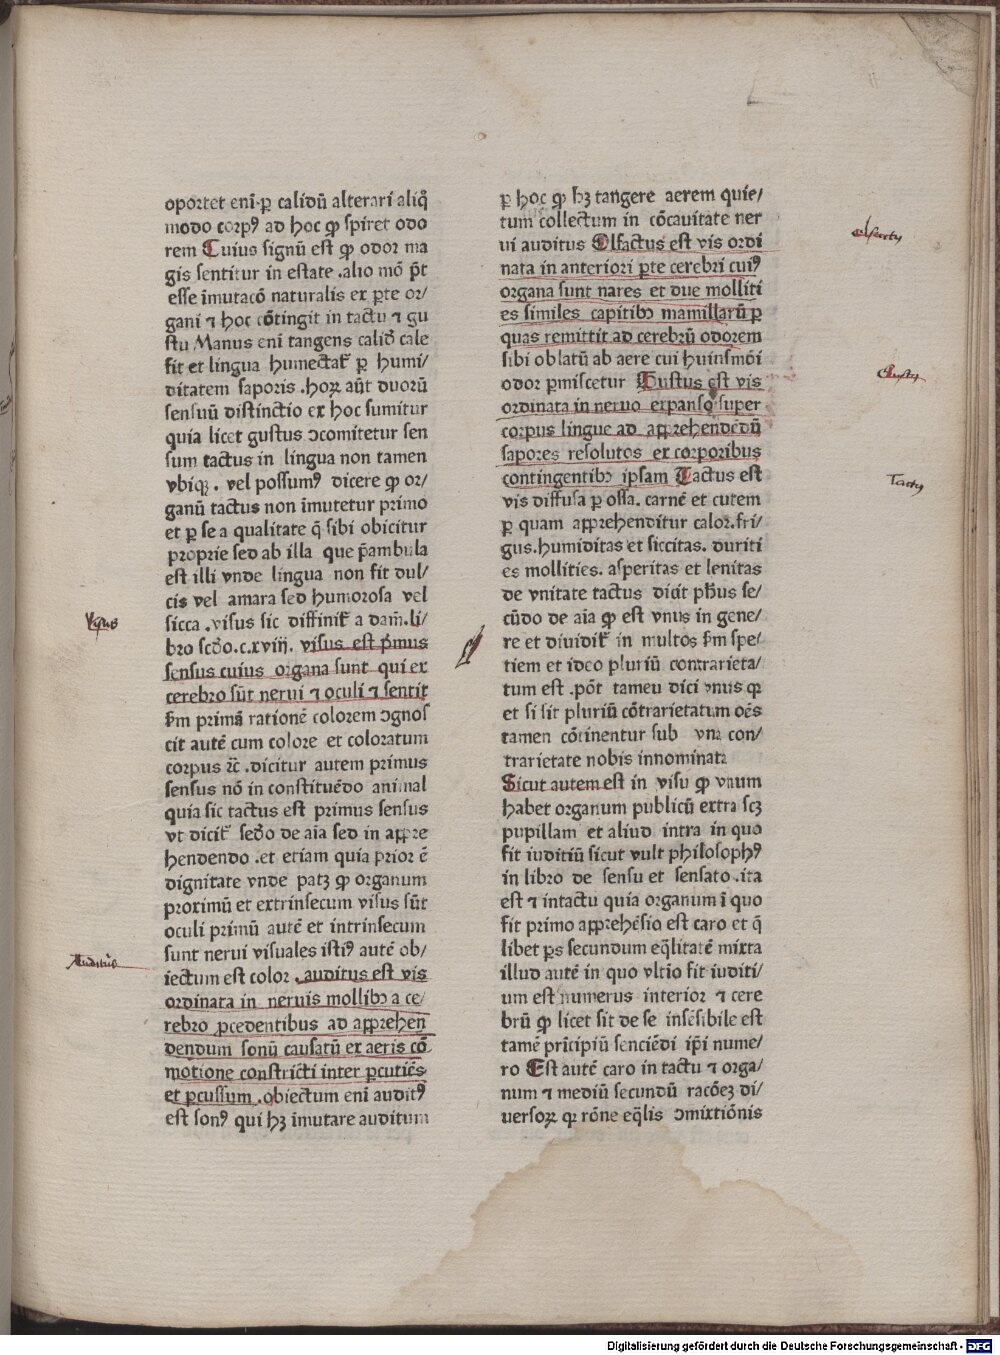 oportet eni̅ ꝑ calidū alterari aliq̊
modo corpꝰ ad hoc ꝙ spiret odo
rem Cuius signū est ꝙ odor ma
gis sentitur in estate .alio mō p̄t
esse īmutacō naturalis ex ꝑte or/
gani ⁊ hoc cōtingit in tactu ⁊ gu
stu Manus eni tangens calidō cale
fit et lingua humectat̄ ꝑ humi/
ditatem saporis .hoꝝ aūt duorū
sensuū distinctio ex hoc sumitur
quia licet gustus ↄcomitetur sen
sum tactus in lingua non tamen
vbiqꝫ. vel possumꝰ dicere ꝙ or/
ganū tactus non īmutetur primo
et ꝑ se a qualitate q̄ sibi obicitur
proprie sed ab illa que p̄ambula
est illi vnde lingua non fit dul/
cis vel amara sed humorosa vel
sicca .visus sic diffinit̄ a dam̄.li/
bro scd̄o.c.xviij. visus est p̄mus
sensus cuius organa sunt qui ex
cerebro sūt nerui ⁊ oculi ⁊ sentit
ẜm primā rationē colorem ↄgnos
cit autē cum colore et coloratum
corpus ⁊c̄ .dicitur autem primus
sensus nō in constituēdo animal
quia sic tactus est primus sensus
vt dicit̄ secd̄o de aīa sed in appre
hendendo .et etiam quia prior ē
dignitate vnde patꝫ ꝙ organum
proximū et extrinsecum visus sūt
oculi primū autē et intrinsecum
sunt nerui visuales istiꝰ autē ob/
iectum est color .auditus est vis
ordinata in neruis mollibꝫ a ce/
rebro ꝓcedentibus ad apprehen
dendum sonū causatū ex aeris cō
motione constricti inter ꝑcutiēs
et ꝑcussum .obiectum eni̅ auditꝰ
est sonꝰ qui hꝫ īmutare auditum
ꝑ hoc ꝙ hꝫ tangere aerem quie/
tum collectum in cōcauitate ner
ui auditus Olfactus est vis ordi
nata in anteriori ꝑte cerebri cuiꝰ
organa sunt nares et due molliti
es similes capitibꝫ mamillarū ꝑ
quas remittit ad cerebrū odorem
sibi oblatū ab aere cui huiusmōi
odor ꝑmiscetur Gustus est vis
ordinata in neruo expanso super
corpus lingue ad apprehendēdū
sapores resolutos ex corporibus
contingentibꝫ ipsam Tactus est
vis diffusa ꝑ ossa. carnē et cutem
ꝑ quam apprehenditur calor.fri/
gus.humiditas et siccitas. duriti
es mollities. asperitas et lenitas
de vnitate tactus dicit ph̄us se/
cūdo de aīa ꝙ est vnus in gene/
re et diuidit̄ in multos ẜm spe/
tiem et ideo pluriū contrarieta/
tum est .pōt tameu dici vnus qꝛ
et si sit pluriū cōtrarietatum oēs
tamen cōtinentur sub vna con/
trarietate nobis innominata
Sicut autem est in visu ꝙ vnum
habet organum publicū extra scꝫ
pupillam et aliud intra in quo
fit iuditiū sicut vult philosophꝰ
in libro de sensu et sensato .ita
est ⁊ intactu quia organum ī quo
fit primo apprehēsio est caro et q̄
libet ꝑs secundum eq̄litatē mixta
illud autē in quo vltīo fit iuditi/
um est numerus interior ⁊ cere
brū ꝙ licet sit de se insēsibile est
tamē prīcipiū senciēdi ip̄i nume/
ro Est autē caro in tactu ⁊ orga/
num ⁊ mediū secundū racōeꝫ di/
uersoꝝ qꝛ rōne eq̄lis ↄmixtiōnis
olfactꝰ
Gustꝰ
Tactꝰ
Visus
Auditus
Digitalisierung gefördert durch die Deutsche Forschungsgemeinschaft - DFG